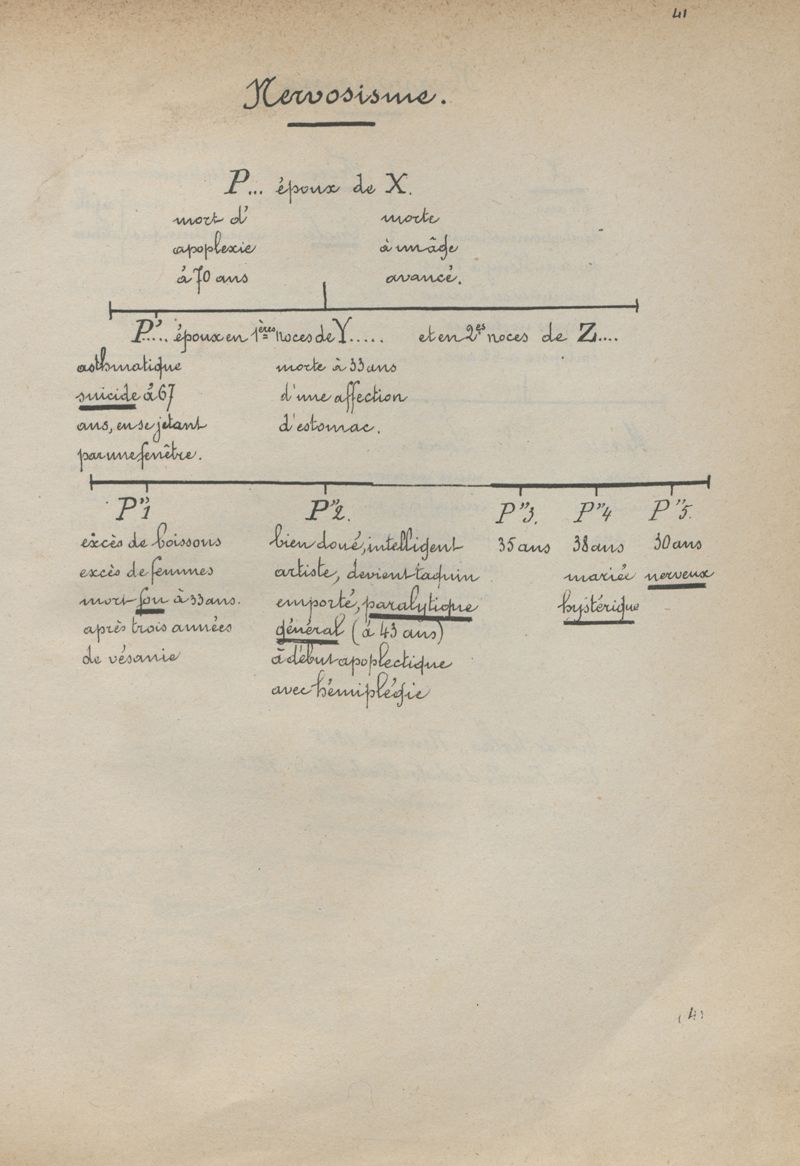 41
Nervosisme.
P... époux de X.
mort d' morte
apoplexie à un âge
à 70 ans avancé.
P'.... époux en 1ères noces de Y..... et en 2es noces de Z....
asthmatique morte à 33 ans
suicide à 67 d'une affection
ans, en se jetant d'estomac.
par une fenêtre.
P"1 P"2. P"3. P"4 P"5.
excès de boissons bien doué, intelligent 35 ans 38 ans 30 ans
excès de femmes artiste, devient taquin mariée nerveux
mort fou à 33 ans. emporté, paralytique hystérique
après trois années général (à 43 ans)
de vésanie à début apoplectique
avec hémiplégie
(4)